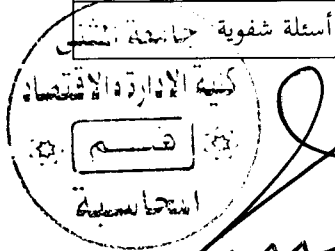 أسئلة شفوية
جامعة المثنى
كلية الادارة والاقتصاد
قسم
المحاسبة